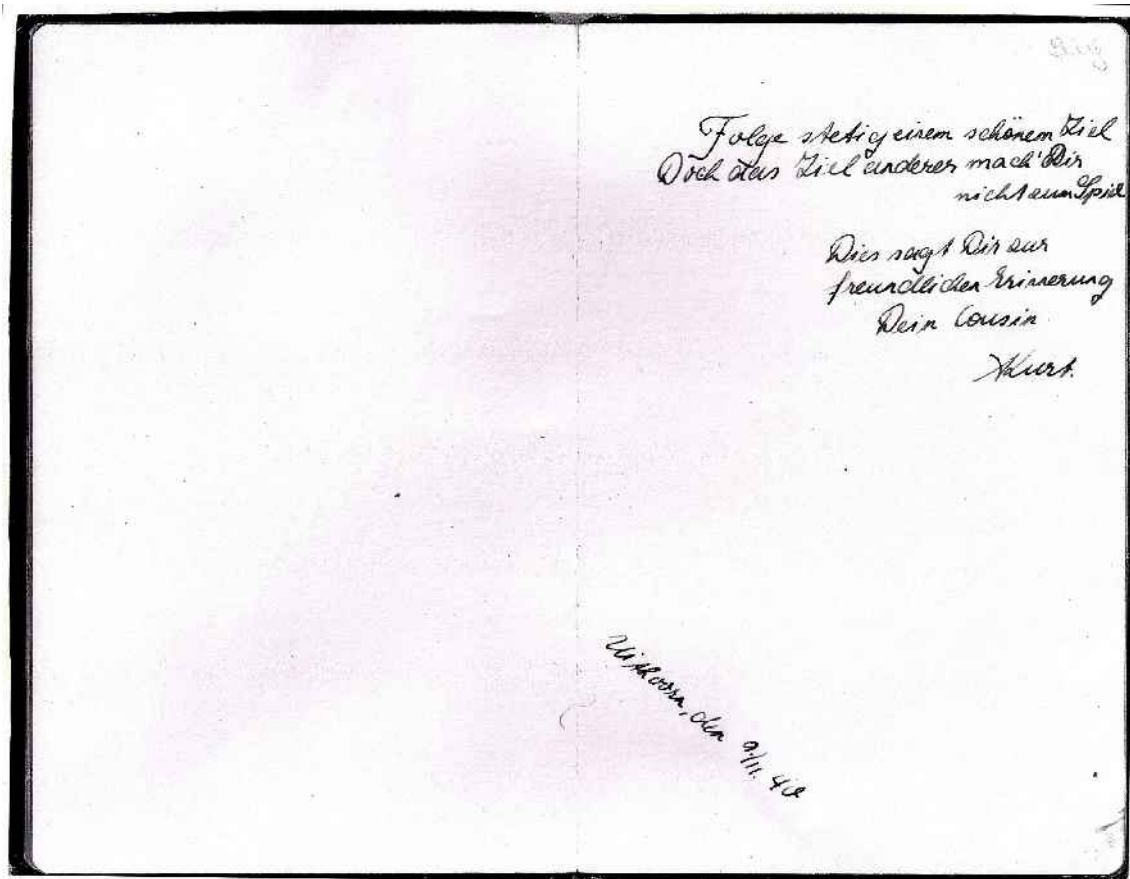 Folge stetig einem schönem Ziel
Doch das Ziel anderer mach' Dir
nicht zum Spiel
Dies sagt Dir zur
freundlichen Erinnerung
Dein Cousin
Kurt.
Uithoorn, den 9./11.